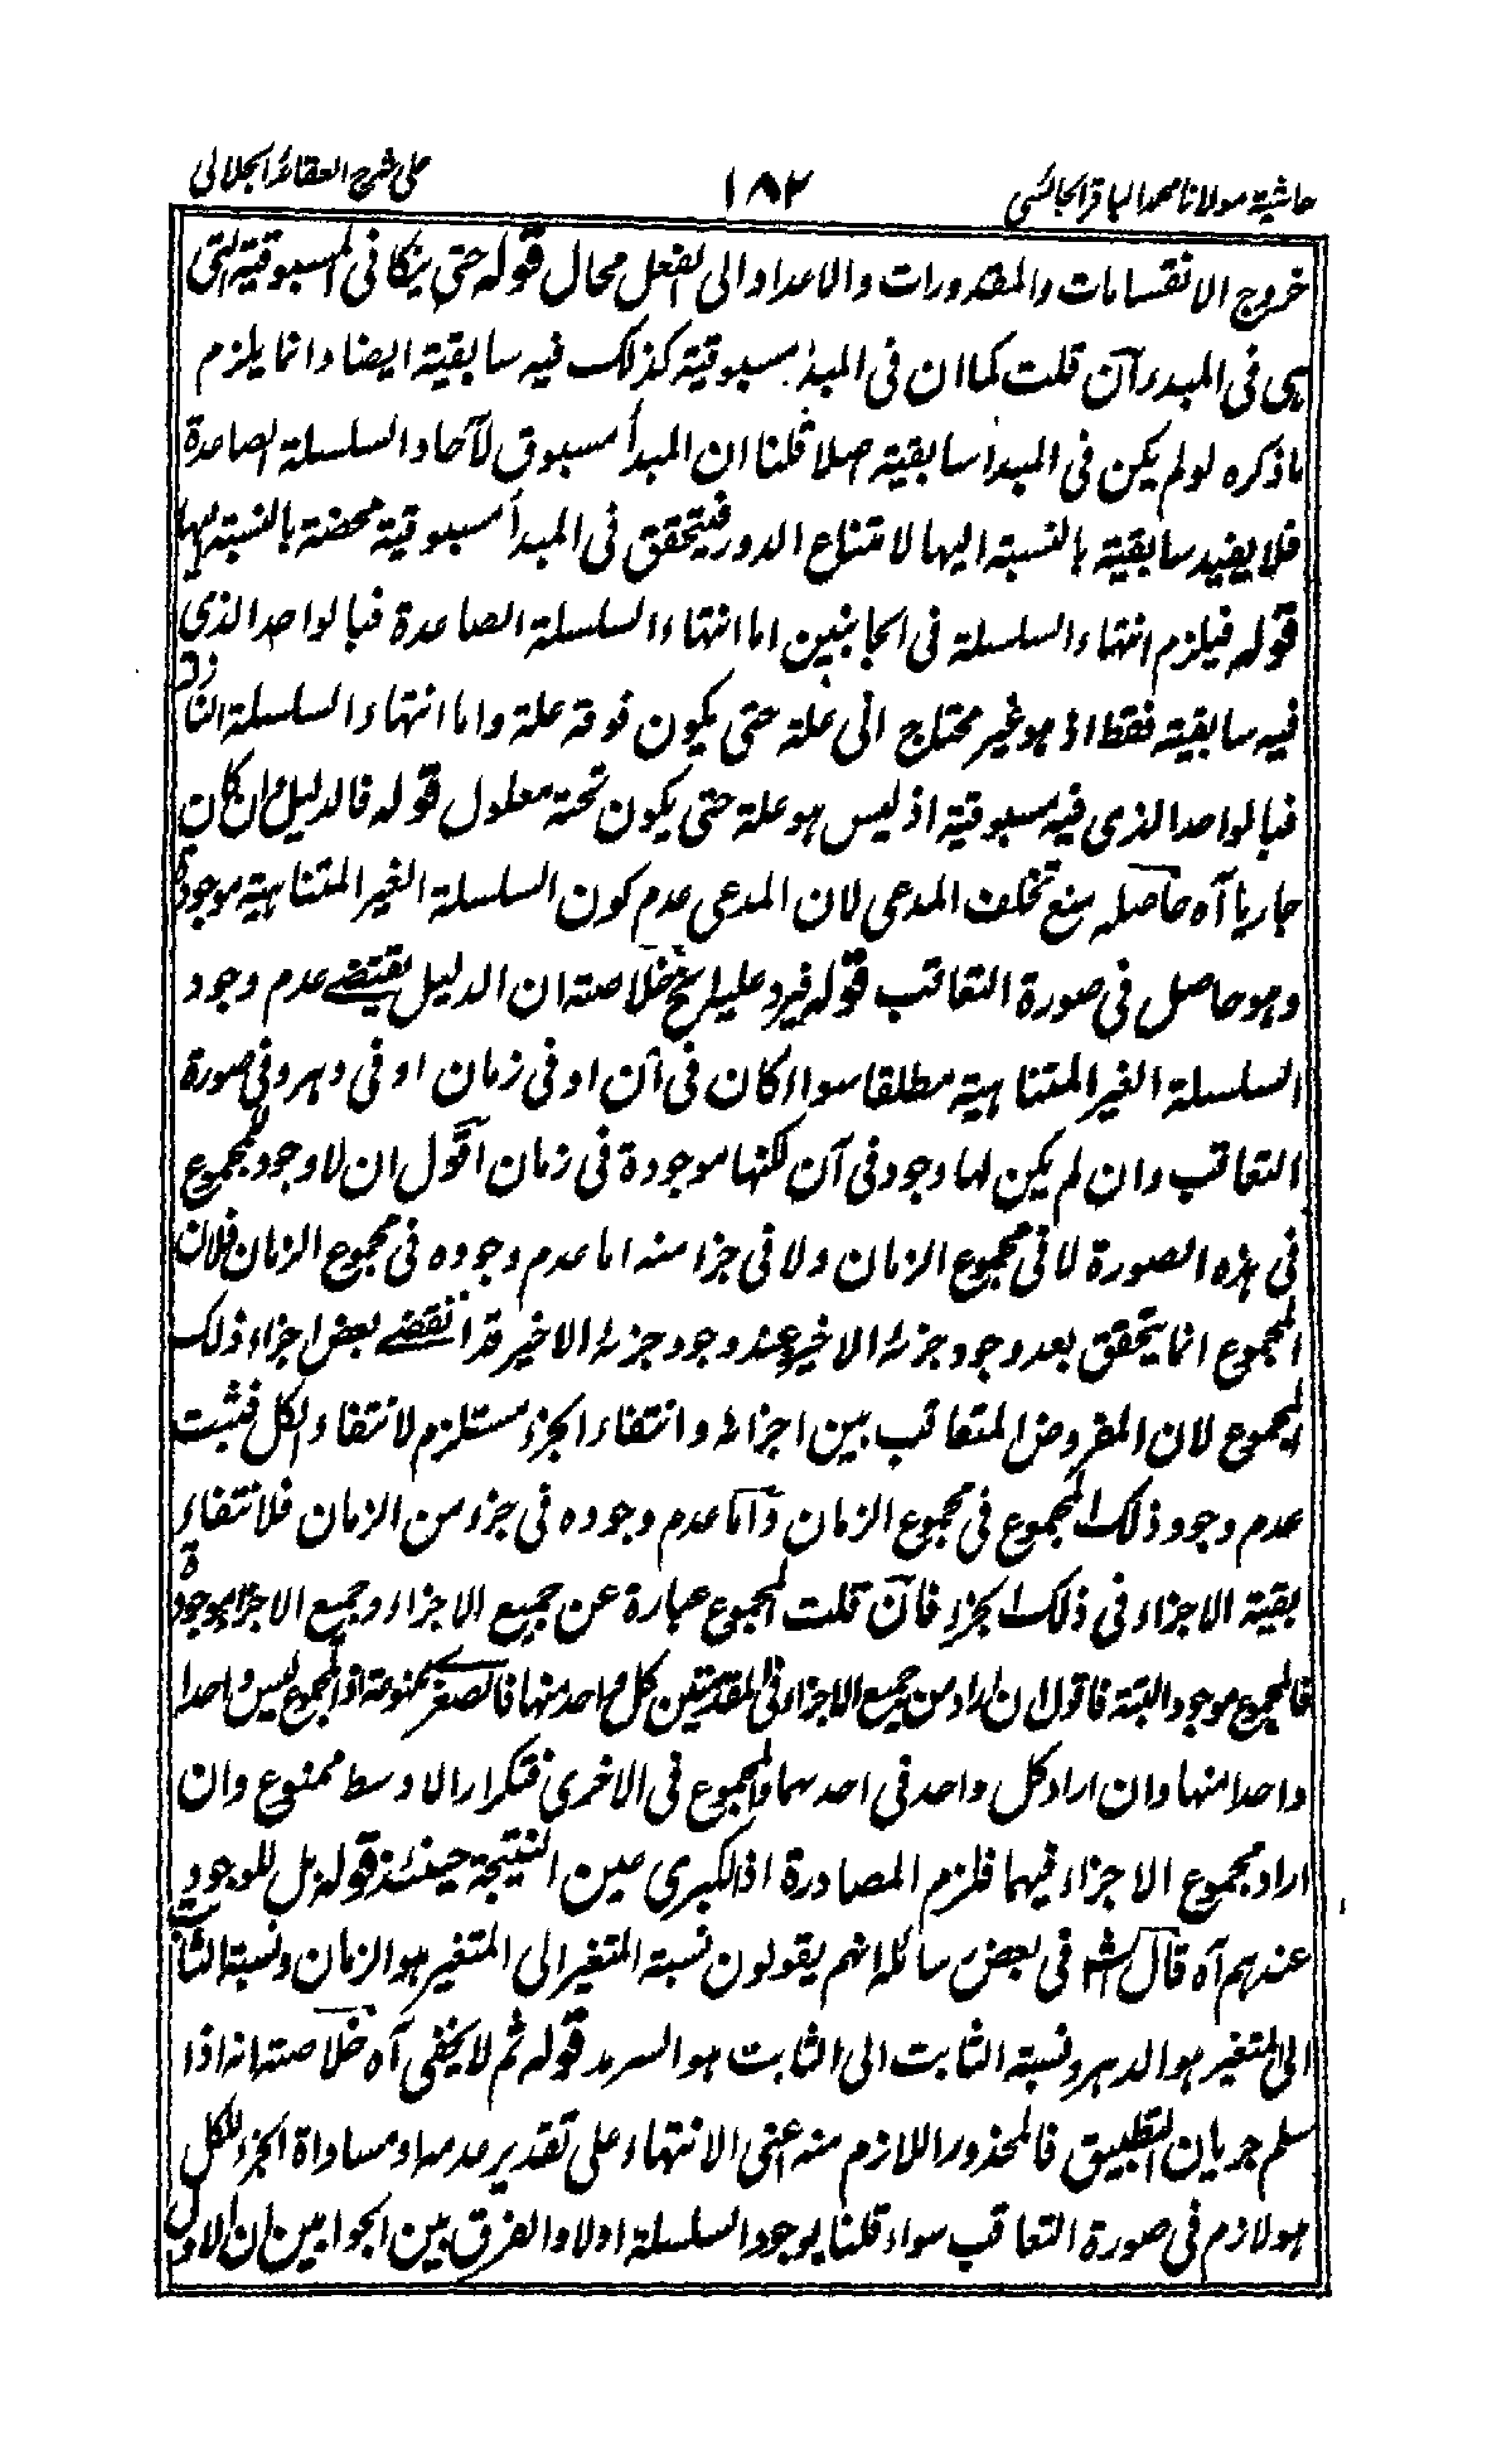 حاشية مولانا محمد الباقر الجائسي ١٨٢ على شرح العقائد الجلالي
خروج الانقسامات والمقدورات والاعداد الى الفعل محال قوله حتى يتكافى المسبوقية التي
هي في المبدء آن قلت كما ان في المبدأ مسبوقية كذلك فيه سابقية ايضا وانما يلزم
ما ذكره لو لم يكن في المبدأ سابقية اصلا قلنا ان المبدأ مسبوق لآحاد السلسلة الصاعدة
فلا يفيد سابقية بالنسبة اليها لامتناع الدور فيتحقق في المبدأ مسبوقية محضة بالنسبة اليها
قوله فيلزم انتهاء السلسلة في الجانبين اما انتهاء السلسلة الصاعدة فبالواحد الذي
فيه سابقية فقط اذ هو غير محتاج الى علة حتى يكون فوقه علة واما انتهاء السلسلة النازلة
فبالواحد الذي فيه مسبوقية اذ ليس هو علة حتى يكون تحته معلول قوله فالدليل وان كان
جاريا آه حاصله منع تخلف المدعى لان المدعى عدم كون السلسلة الغير المتناهية موجودة
وهو حاصل في صورة التعاقب قوله فيرد عليه الخ خلاصته ان الدليل يقتضے عدم وجود
السلسلة الغير المتناهية مطلقا سواء كان في آن او في زمان او في دهر وفي صورة
التعاقب وان لم يكن لها وجود في آن لكنها موجودة في زمان آقول ان لا وجود للمجموع
في هذه الصورة لا في مجموع الزمان ولا في جزء منه اما عدم وجوده في مجموع الزمان فلان
المجموع انما يتحقق بعد وجود جزئه الاخير وعند وجود جزئه الاخير قد انقضے بعض اجزاء ذلك
المجموع لان المفروض التعاقب بين اجزائه وانتفاء الجزء مستلزم لانتفاء الكل فثبت
عدم وجود ذلك المجموع في مجموع الزمان وآما عدم وجوده في جزء من الزمان فلانتفاء
بقية الاجزاء في ذلك الجزء فآن قلت المجموع عبارة عن جميع الاجزاء وجميع الاجزاء موجودة
فالمجموع موجود البتة فاقول ان اراد من جميع الاجزاء في المقدمتين كل واحد منها فالصغرى ممنوعة اذ المجموع ليس واحدا
واحدا منها وان اراد كل واحد في احدهما والمجموع في الاخرى فتكرار الاوسط ممنوع وان
اراد مجموع الاجزاء فيهما فلزم المصادرة اذ الكبرى عين النتيجة حينئذ قوله بل للوجود
عندهم آه قال الش في بعض رسائله انهم يقولون نسبة المتغير الى المتغير هو الزمان ونسبة الثابت
الى المتغير هو الدهر ونسبة الثابت الى الثابت هو السرمد قوله ثم لا يخفى آه خلاصته انه اذا
سلم جريان التطبيق فالمحذور اللازم منه اعنى الانتهاء على تقدير عدمه او مساواة الجزء للكل
هو لازم في صورة التعاقب سواء قلنا بوجود السلسلة اولا والفرق بين الجوابين ان الاول